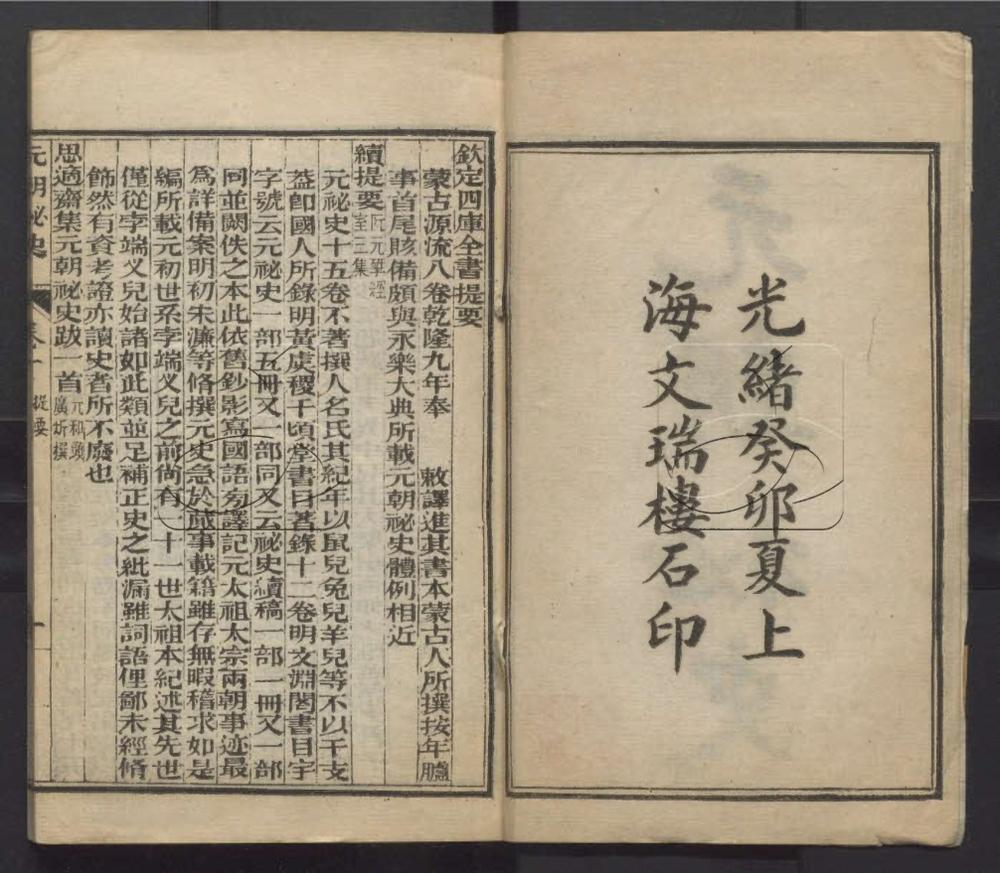 光緒癸卯夏上
海文瑞樓石印
欽定四庫全書提要
蒙古源流八卷乾隆九年奉 敕譯進其書本蒙古人所撰按年臚
事首尾賅備頗與永樂大典所載元朝祕史體例相近
續提要阮元揅經室三集
元祕史十五卷不著撰人名氏其紀年以鼠兒兔兒羊兒等不以干支
益卽國人所錄明黃虞稷千頃堂書目著錄十二卷明文淵閣書目宇
字號云元祕史一部五冊又一部同又云祕史續稿一部一冊又一部
同並闕佚之本此依舊鈔影寫國語旁譯記元太祖太宗兩朝事迹最
爲詳備案明初宋濂等脩撰元史急於蕆事載籍雖存無暇稽求如是
編所載元初世系孛端义兒之前尚有一十一世太祖本紀述其先世
僅從孛端义兒始諸如此類並足補正史之紕漏雖詞語俚鄙未經脩
飾然有資考證亦讀史者所不廢也
思適齋集元朝祕史跋一首元和顧廣圻撰
元朝祕史 卷一 提要 一